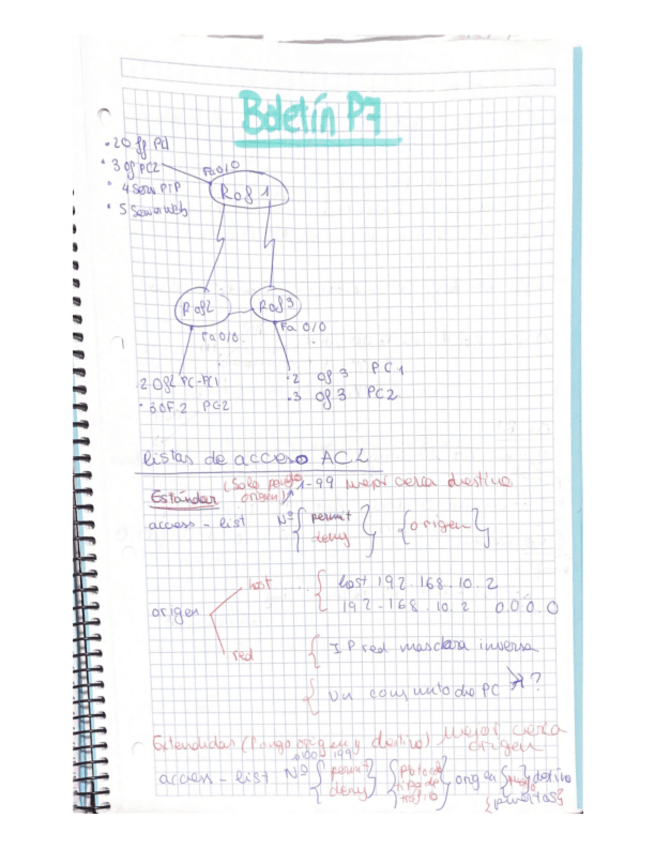 Boletín P7
.20 fg PC1
.3 of PC2
.4 Serv FTP
.5 Servidor web
Fa0/0
Rof 1
Rof2
Rof 3
Fa0/0
Fa 0/0
.2 Of2 PC-PC1
.3 OF.2 PC2
.2 of 3 PC1
.3 of 3 PC2
listas de acceso ACL
Estándar (Solo pongo origen) 1-99 mejor cerca destino
access - list Nº { permit deny } { origen }
origen
host { host 192.168.10.2
192.168.10.2 0.0.0.0
red { IP red mascara inversa
{ Un conjunto de PC ?
Extendidas (Pongo origen y destino) Mejor cerca origen
access - list Nº { permit deny } { tipo de } origen destino
{puertos}